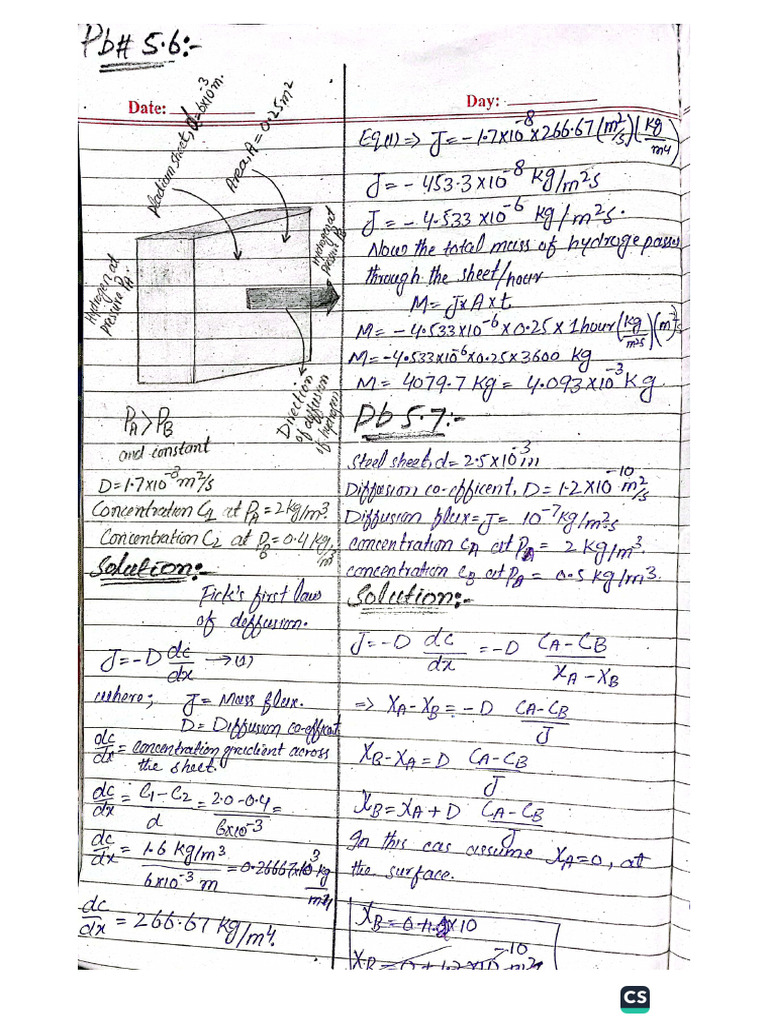 Pb# 5.6:-
Date:
Pladium sheet, d=6x10⁻³m.
Area, A = 0.25m²
Hydrogen at pressure P_A.
Hydrogen at pressure P_B
Direction of diffusion of hydrogen
P_A > P_B
and constant
D=1.7x10⁻⁸m²/s
Concentration C₁ at P_A=2kg/m³
Concentration C₂ at P_B=0.4 kg/m³
Solution:-
Fick's first law
of deffusion.
J=-D dc/dx → (1)
where; J= Mass flux.
D= Diffusion co-efficent
dc/dx = concentration gradient across
the sheet.
dc/dx = C₁-C₂/d = 2.0-0.4/6x10⁻³ =
dc/dx = 1.6 kg/m³/6x10⁻³ m = 0.26667x10³ kg/m⁴
dc/dx = 266.67 kg/m⁴.
Day:
Eq(1)=> J=-1.7x10⁻⁸x266.67(m²/s)(kg/m4)
J=-453.3x10⁻⁸ kg/m²s
J=-4.533x10⁻⁶ kg/m²s.
Now the total mass of hydroge passes
through the sheet/hour
M=JxAxt
M=-4.533x10⁻⁶x0.25x1hour(kg/m²s)(m²)
M=-4.533x10⁻⁶x0.25x3600 kg
M= 4079.7 Kg= 4.093x10⁻³Kg.
Pb 5.7:-
Steel sheet,d= 2.5x10⁻³m
Diffusion co-efficent, D=1.2x10⁻¹⁰m²/s
Diffusion flux=J= 10⁻⁷kg/m²s
concentration C_A at P_A= 2 kg/m³.
concentration C_B at P_A= 0.5 kg/m3.
Solution:-
J=-D dc/dx =-D C_A-C_B/X_A-X_B
=> X_A-X_B=-D C_A-C_B/J
X_B-X_A=D C_A-C_B/J
X_B=X_A+D C_A-C_B/J
In this cas assume X_A=0, at
the surface.
X_B=0+1.2x10
X_B=0+1.2x10⁻¹⁰ m²
CS